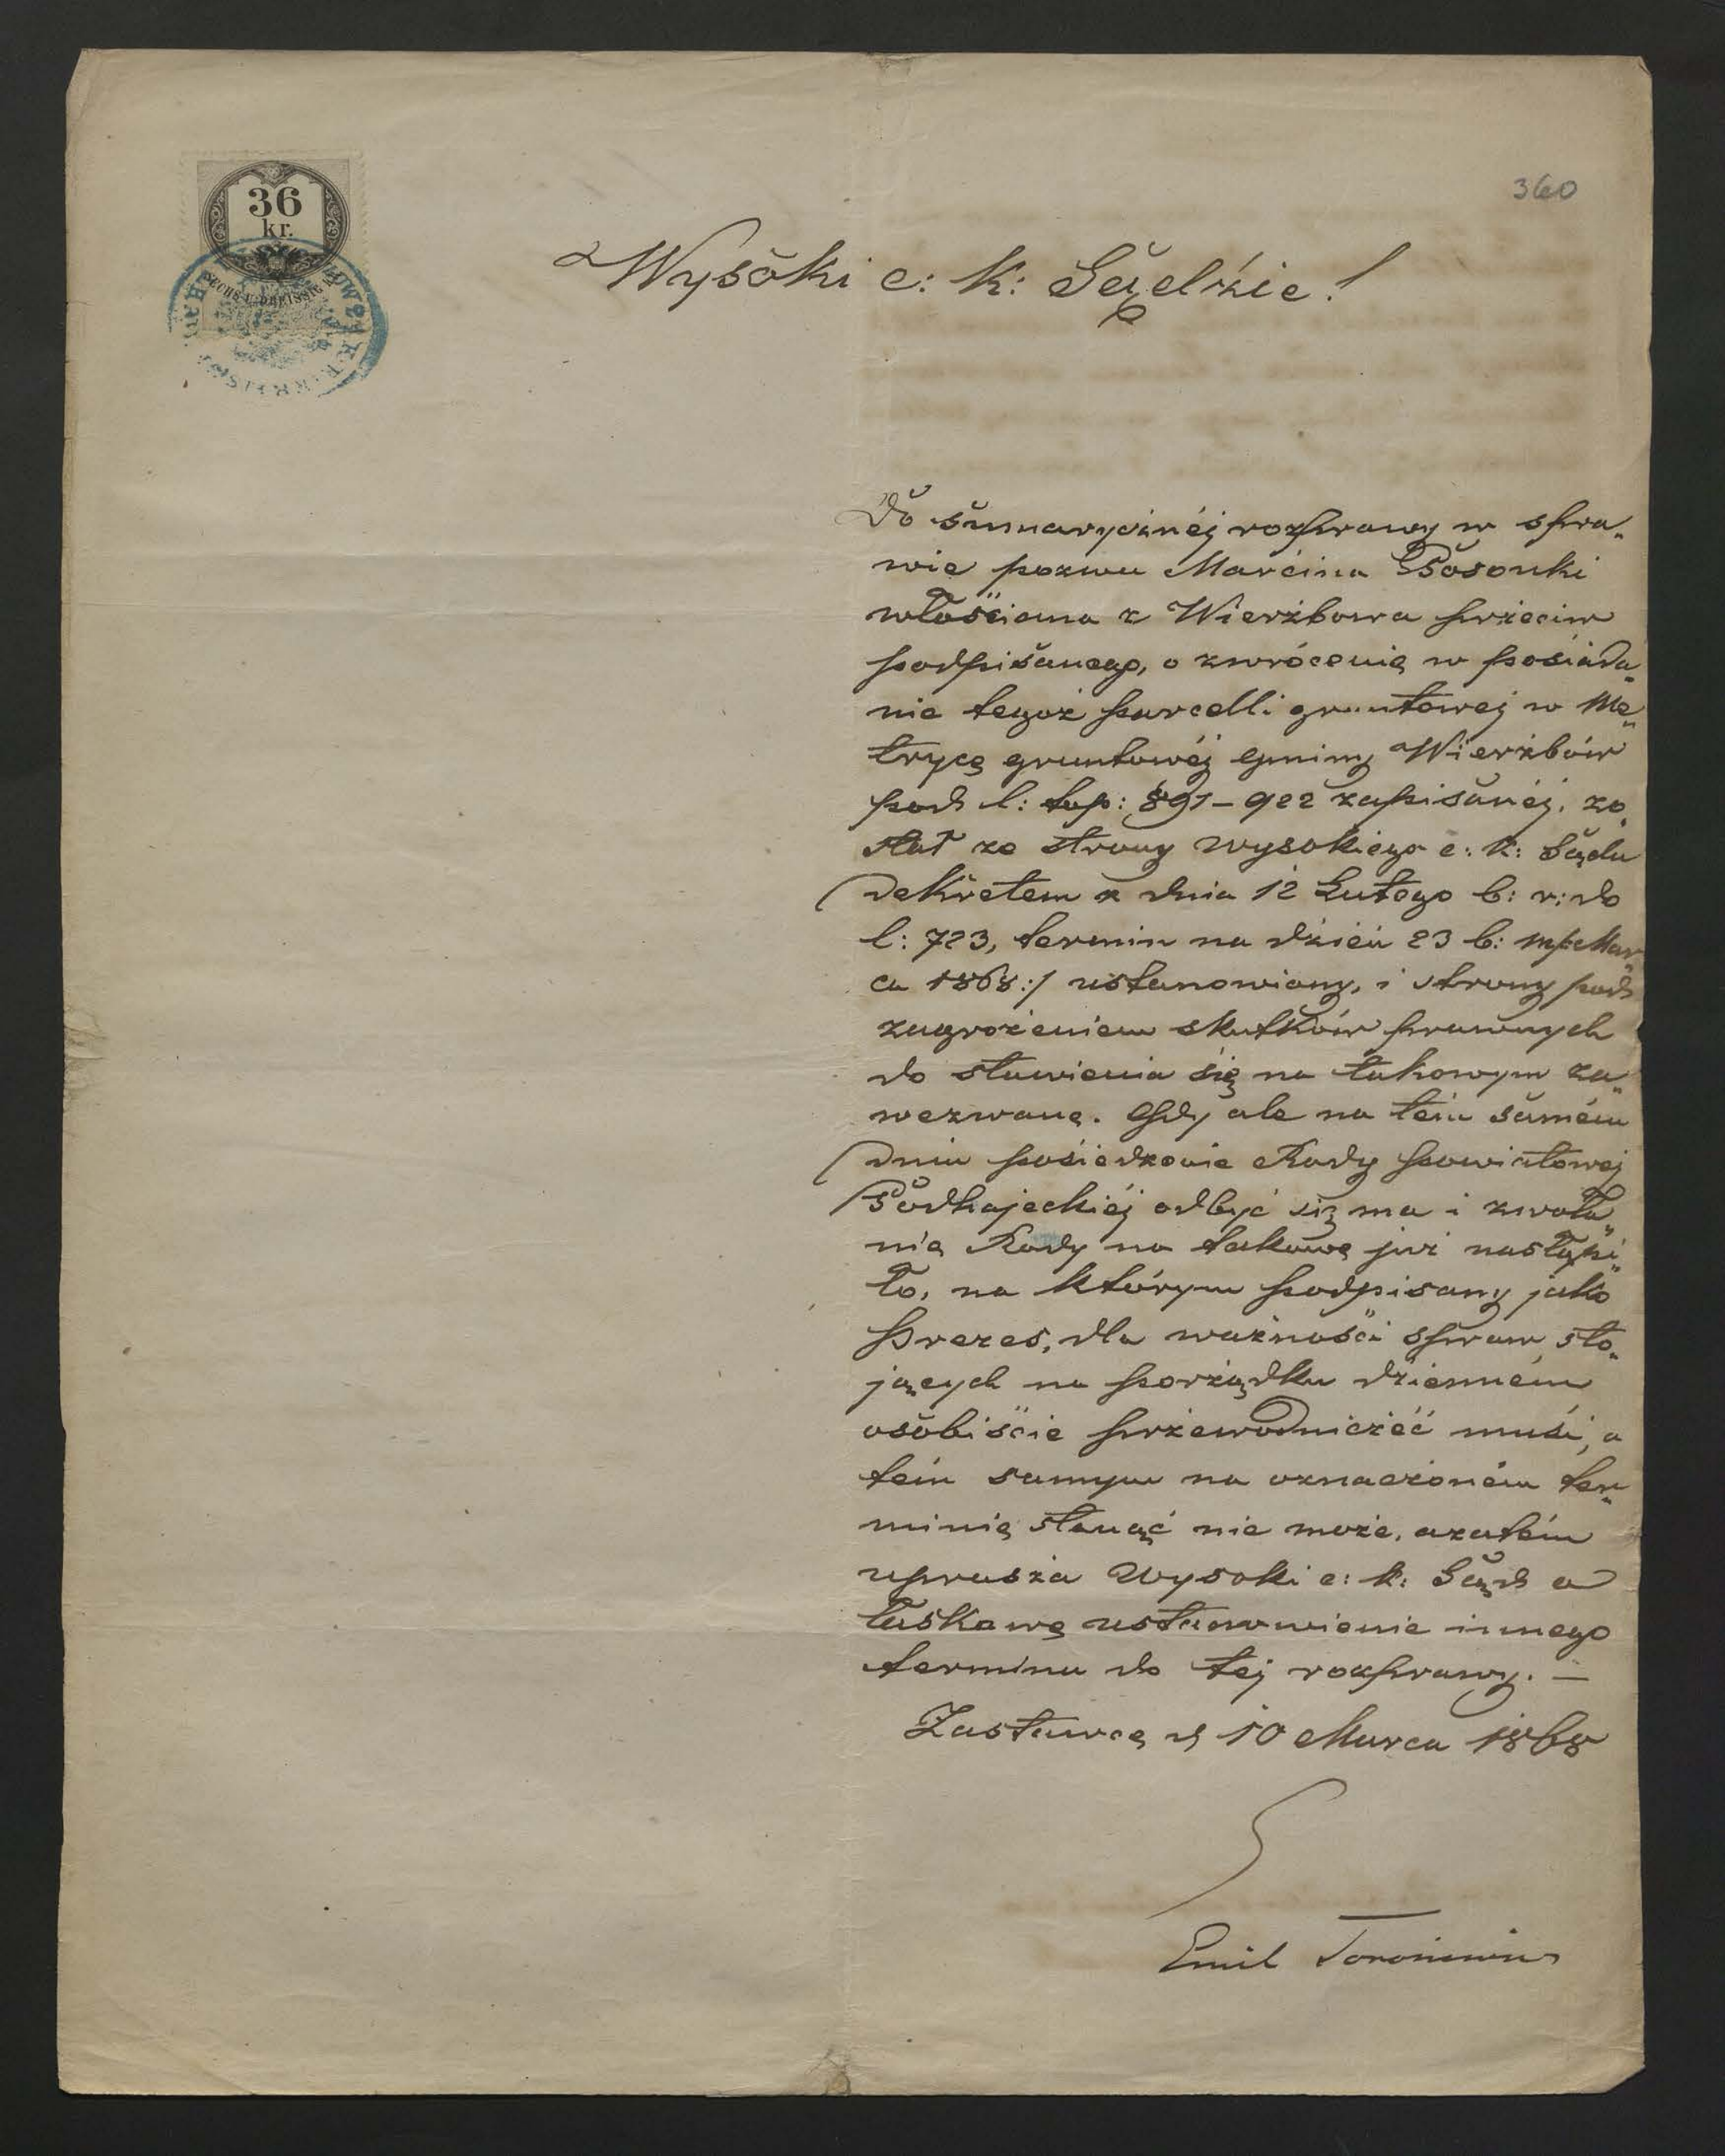 360
36
kr.
SECHS U. DREISSIG
Wysoki c: k: Sądzie!
Do sumarycznéj rozprawy w spra„
wie pozwu Marcina Posonki
włościana z Wierzbowa przeciw
podpisanego, o zwrócenię w posiada„
nie tegoż parcelli gruntowej w Me„
trycę gruntowéj gminy Wierzbów
pod l: top: 891–922 zapisanéj, zo„
stał ze strony Wysokiego c: k: Sądu
dekretem z dnia 12 Lutego b: r: do
l: 723, termin na dzień 23 b: m /: Mar„
ca 1868 :/ ustanowiony, i strony pod
zagrożeniem skutków prawnych
do stawienia się na takowym za„
wezwane. Gdy ale na tém samém
dniu posiedzenie Rady powiatowej
Podhajeckiéj odbyć się ma i zwoła„
nię Rady na takowę już nastąpi„
ło, na którym podpisany jako
Prezes, dla ważności spraw sto„
jących na porządku dzienném
osobiście przewodniczéć musi, a
tém samym na oznaczoném ter„
minię stanąć nie może, azatém
uprasza Wysoki c: k: Sąd o
łaskawę ustanowienie innego
terminu do tej rozprawy. —
Zastawcę d 10 Marca 1868
Emil Torosiewicz